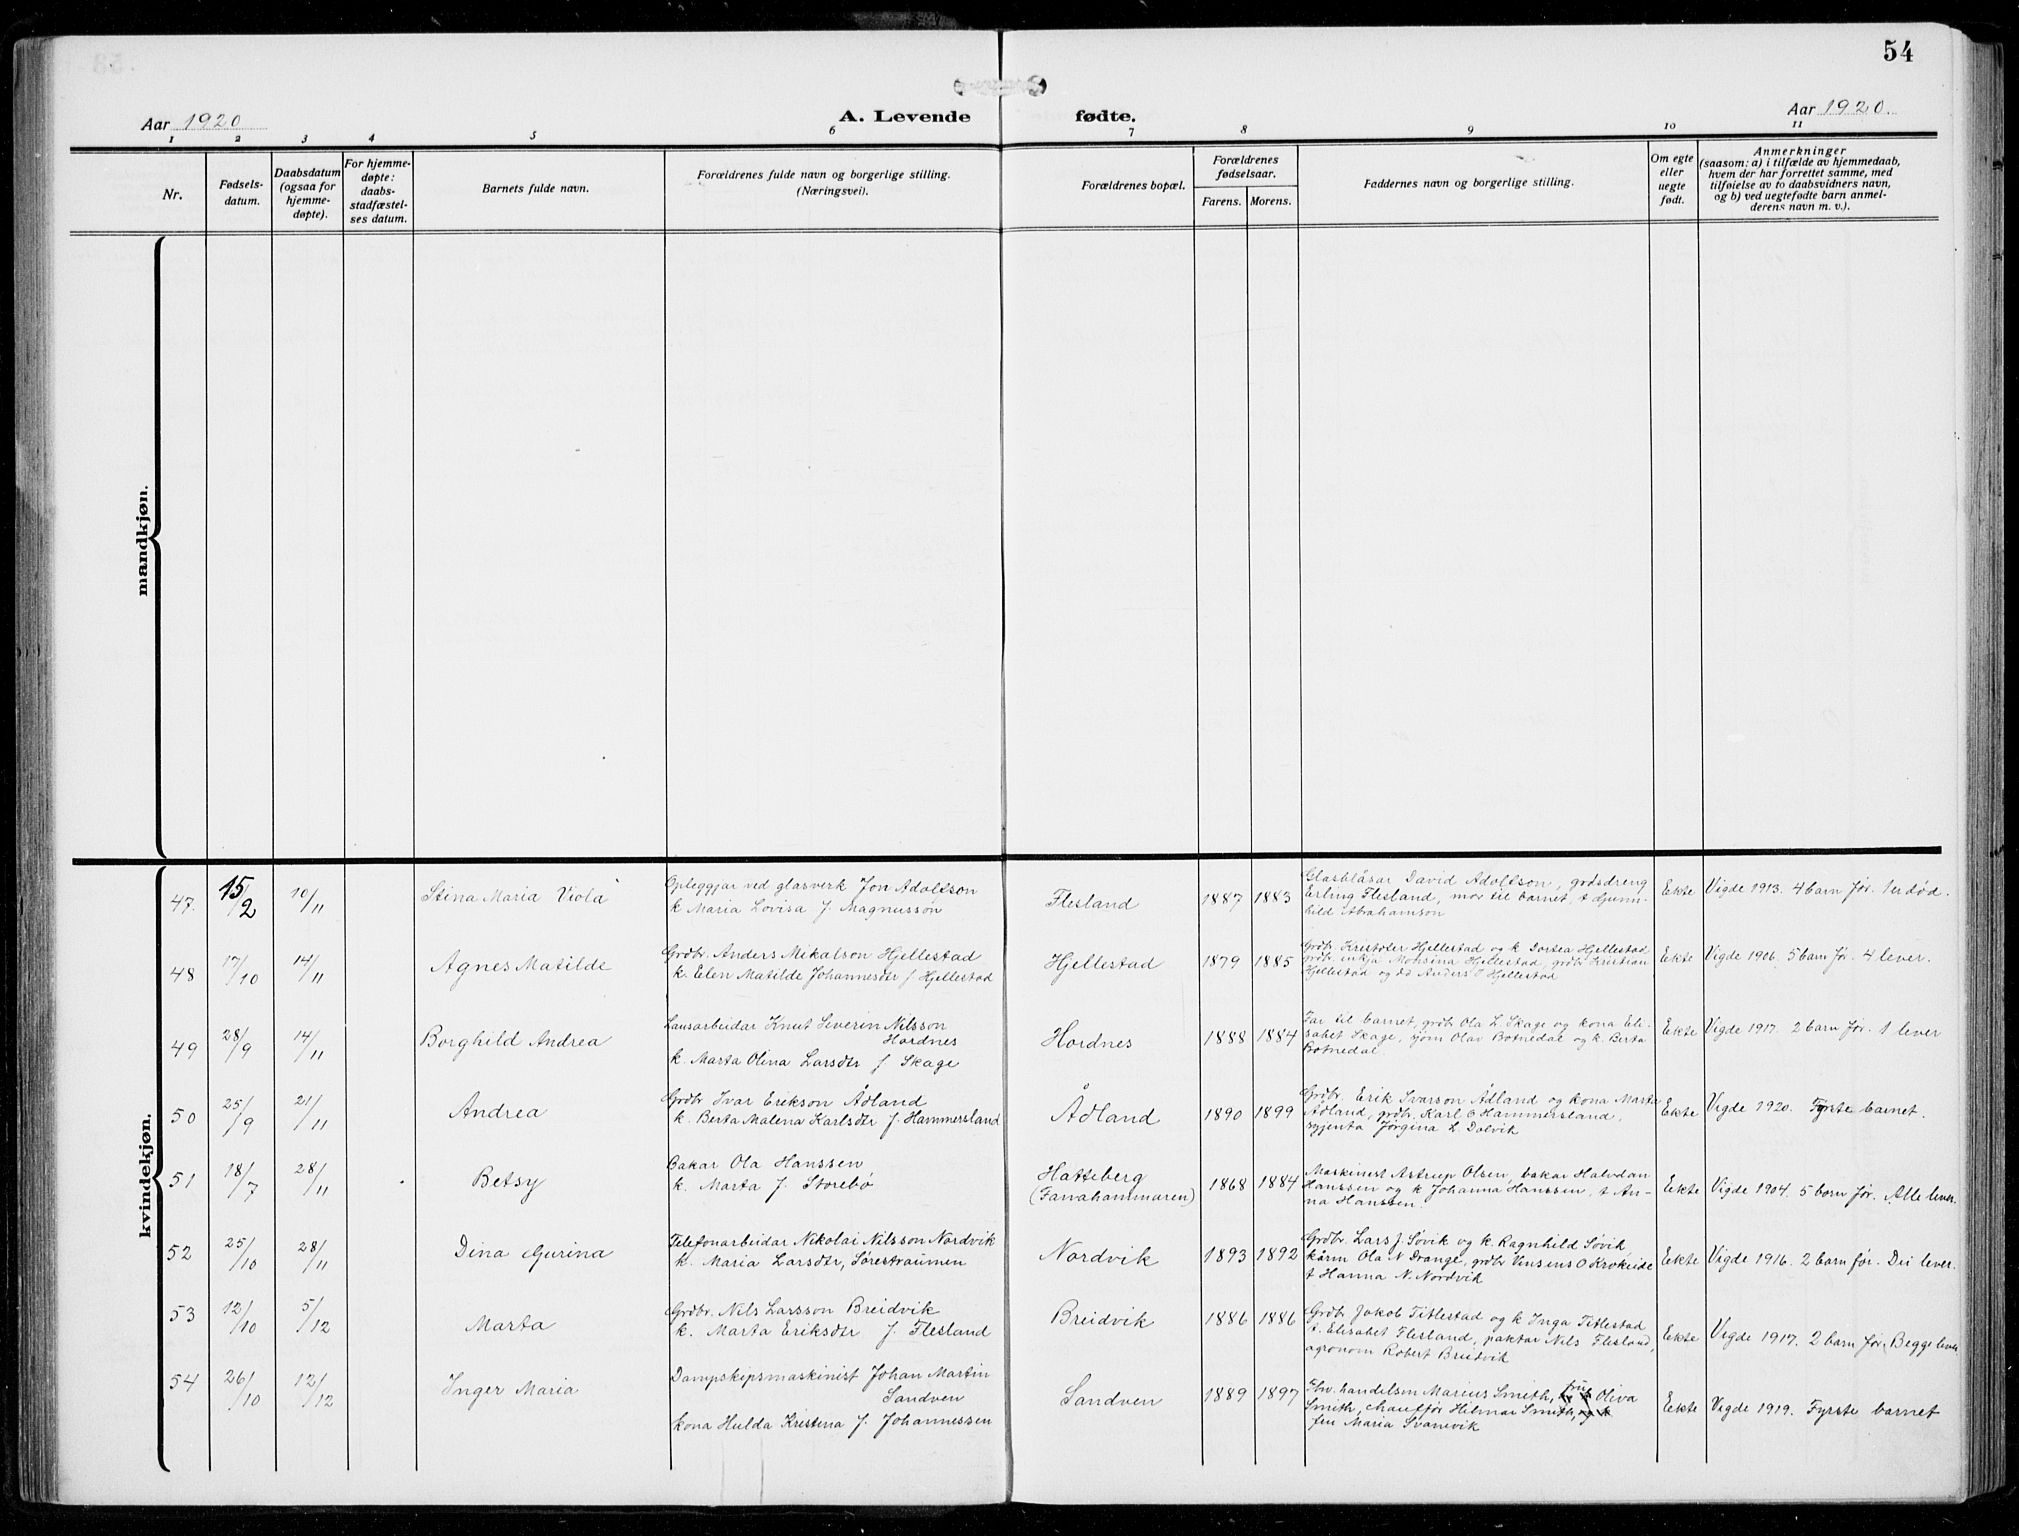 54
Aar 1920
A. Levende fødte.
Aar 1920.
1 2 3 4 5 6 7 8 9 10 11
Nr.
Fødsels-
datum.
Daabsdatum
(ogsaa for
hjemme-
døpte).
For hjemme-
døpte:
daabs-
stadfæstel-
ses datum.
Barnets fulde navn.
Forældrenes fulde navn og borgerlige stilling.
(Næringsvei).
Forældrenes bopæl.
Forældrenes
fødselsaar.
Farens. Morens.
Faddernes navn og borgerlige stilling.
Om egte
eller
uegte
født.
Anmerkninger
(saasom: a) i tilfælde av hjemmedaab,
hvem der har forrettet samme, med
tilføielse av to daabsvidners navn,
og b) ved uegtefødte barn anmel-
derens navn m. v.).
mandkjøn.
kvindekjøn.
47. 15/2 10/11 Stina Maria Viola
Opleggjar ved glasverk Jon Adolfson
k Maria Lovisa f. Magnusson
Flesland 1887 1883
Glasblåsar David Adolfson, gardsdreng
Erling Flesland, mor til barnet, t Gunn-
hild Abrahamson
Ekte Vigde 1913. 4 barn før. 1 er død.
48 17/10 14/11 Agnes Matilde
Grdbr. Anders Mikalson Hjellestad
k. Elen Matilde Johannesdtr f. Hjellestad
Hjellestad 1879 1885
Grdbr Kristofer Hjellestad og k Dortea Hjellestad
grdbr. enkja Monsina Hjellestad, grdbr Kristian
Hjellestad og Anders J Hjellestad
Ekte Vigde 1906. 5 barn før. 4 lever.
49 28/9 14/11 Borghild Andrea
Lausarbeidar Knut Severin Nilsson
Hordnes
k. Marta Olina Larsdtr f. Skage
Hordnes 1888 1884
Far til barnet, grdbr Ola L Skage og kona Eli-
sabet Skage, sjøm Olav Botnedal og k. Berta
Botnedal.
Ekte Vigde 1917. 2 barn før. 1 lever
50 25/9 21/11 Andrea
Grdbr Ivar Erikson Ådland
k. Berta Malena Karlsdtr f. Hammersland
Ådland 1890 1899
Grdbr. Erik Ivarson Ådland og kona Marta
Ådland, grdbr. Karl E Hammersland,
syjenta Jørgina L Dalvik
Ekte Vigde 1920. Fyrste barnet.
51 18/7 28/11 Betsy
Bakar Ola Hanssen,
k. Marta f. Storebø
Hatteberg
(Fanahammaren)
1868 1884
Maskinist Astrup Olsen, bakar Halvdan
Hanssen og k Johanna Hanssen, t An-
na Hanssen.
Ekte Vigde 1904. 5 barn før. Alle lever.
52 25/10 28/11 Dina Gurina
Telefonarbeidar Nikolai Nilsson Nordvik
k. Maria Larsdtr, Sørestraumen
Nordvik 1893 1892
Grdbr. Lars J. Søvik og k. Ragnhild Søvik,
kårm Ola N Drange, grdbr Vinsens O Krokeide
t Hanna N. Nordvik
Ekte Vigde 1916. 2 barn før. Dei lever.
53 12/10 5/12 Marta
Grdbr. Nils Larsson Breidvik
k. Marta Eriksdtr f. Flesland
Breidvik 1886 1886
Grdbr Jakob Titlestad og k Inga Titlestad
t. Elisabet Flesland, paktar Nils Flesland,
agronom Robert Breidvik
Ekte Vigde 1917. 2 barn før. Begge lever.
54 26/10 12/12 Inger Maria
Dampskipsmaskinist Johan Martin
Sandven
kona Hulda Kristina f. Johannessen
Sandven 1889 1897
Fhv. handelsm Marius Smith, frue Oliva
Smith, chauffør Hilmar Smith,
frk Maria Svanevik
Ekte Vigde 1919. Fyrste barnet